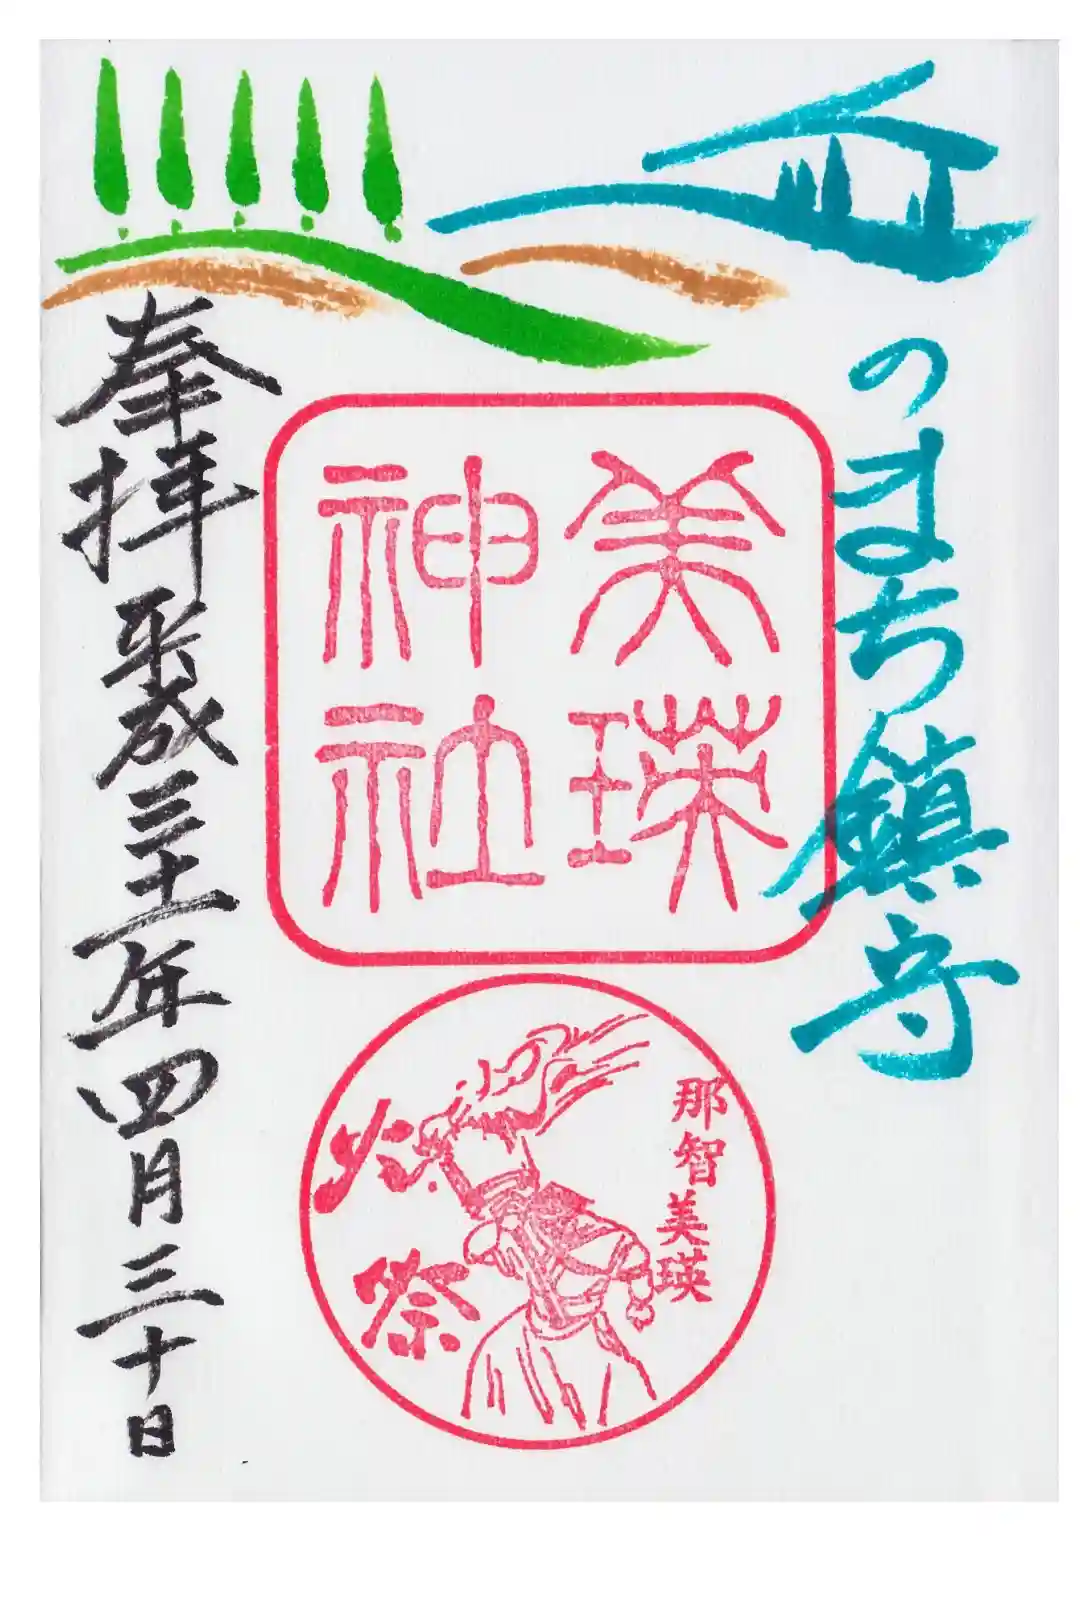 丘のまち鎮守
美瑛
神社
那智美瑛
火祭
奉拝 平成三十一年四月三十日